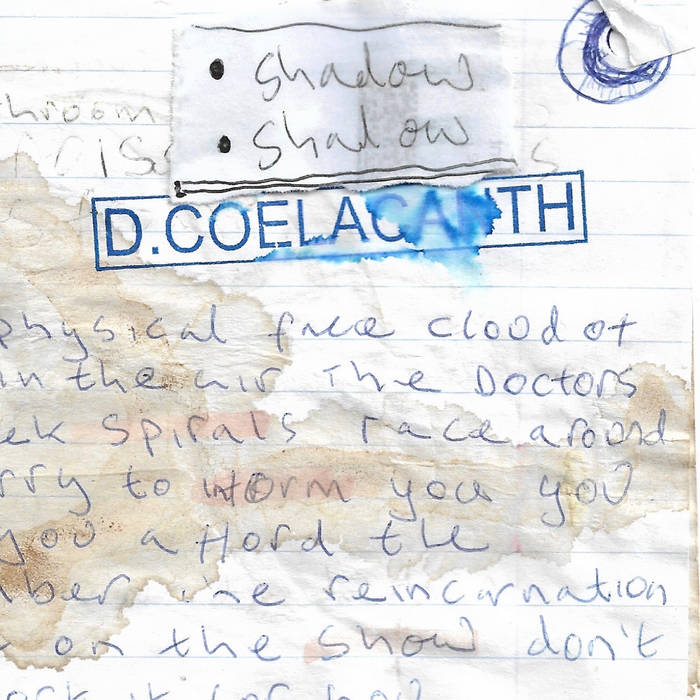 • shadow
• shadow
throom
D.COELACANTH
physical free cloud of
in the air The Doctors
ek Spirals race around
rry to inform you you
you afford the
ber the reincarnation
on the show don't